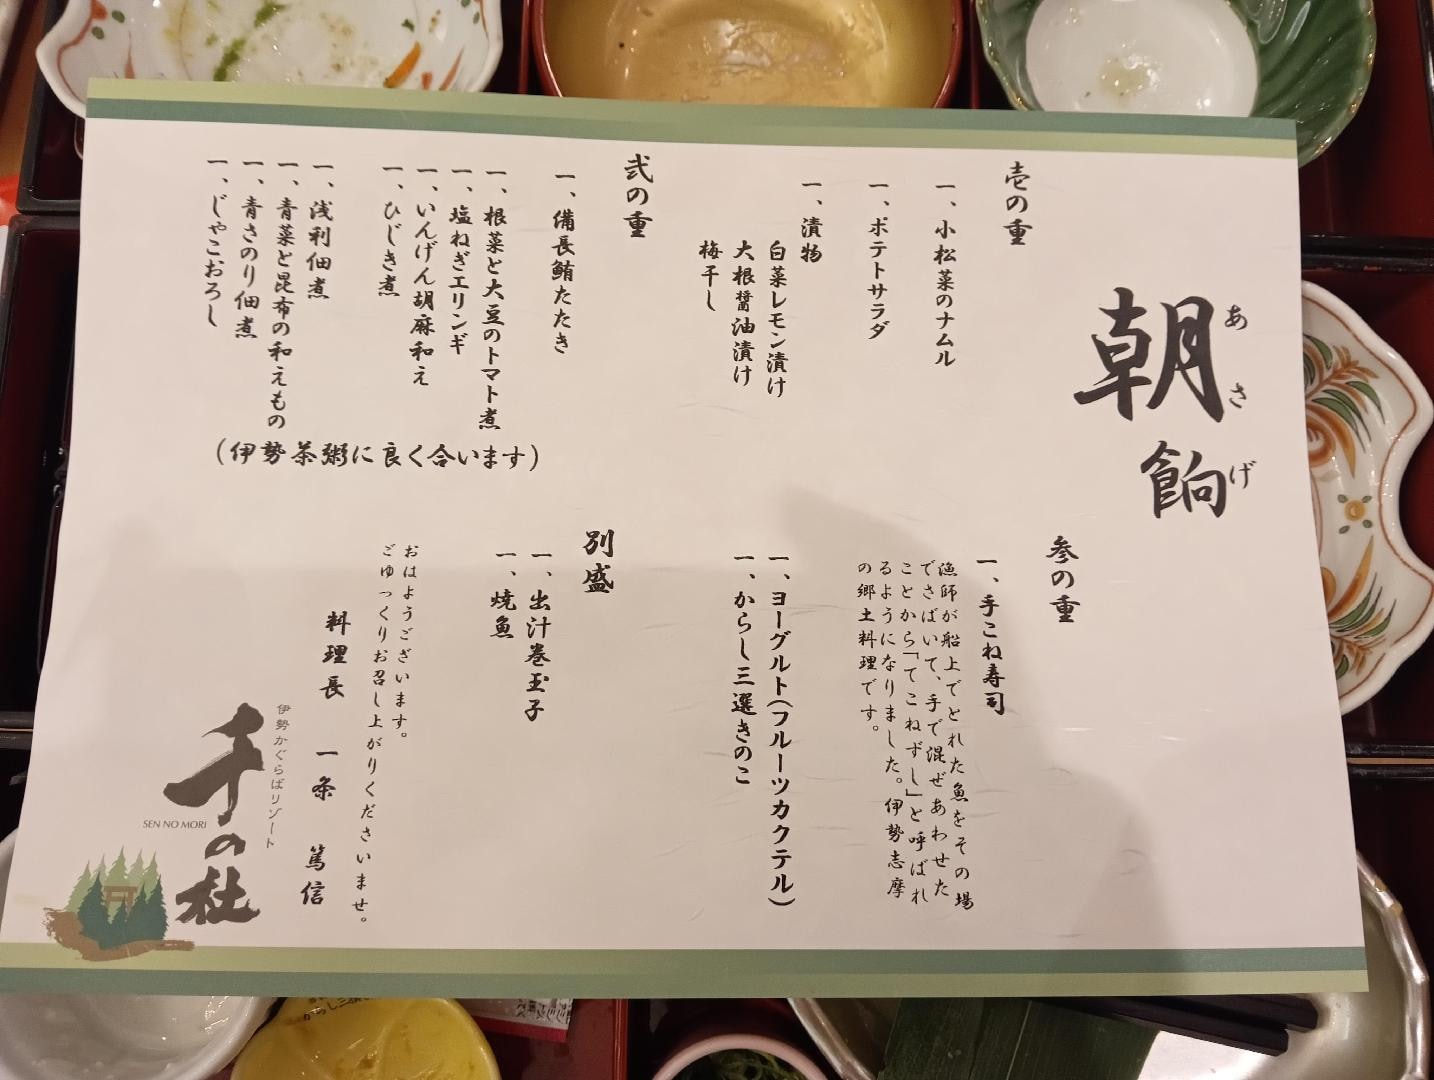 朝餉
あさげ
壱の重
一、小松菜のナムル
一、ポテトサラダ
一、漬物
白菜レモン漬け
大根醤油漬け
梅干し
弐の重
一、備長鮪たたき
一、根菜と大豆のトマト煮
一、塩ねぎエリンギ
一、いんげん胡麻和え
一、ひじき煮
一、浅利佃煮
一、青菜と昆布の和えもの
一、青さのり佃煮
一、じゃこおろし
(伊勢茶粥に良く合います)
参の重
一、手こね寿司
漁師が船上でとれた魚をその場
でさばいて、手で混ぜあわせた
ことから「てこねずし」と呼ばれ
るようになりました。伊勢志摩
の郷土料理です。
一、ヨーグルト(フルーツカクテル)
一、からし三選きのこ
別盛
一、出汁巻玉子
一、焼魚
おはようございます。
ごゆっくりお召し上がりくださいませ。
料理長 一条 篤信
伊勢かぐらばリゾート
千の杜
SEN NO MORI